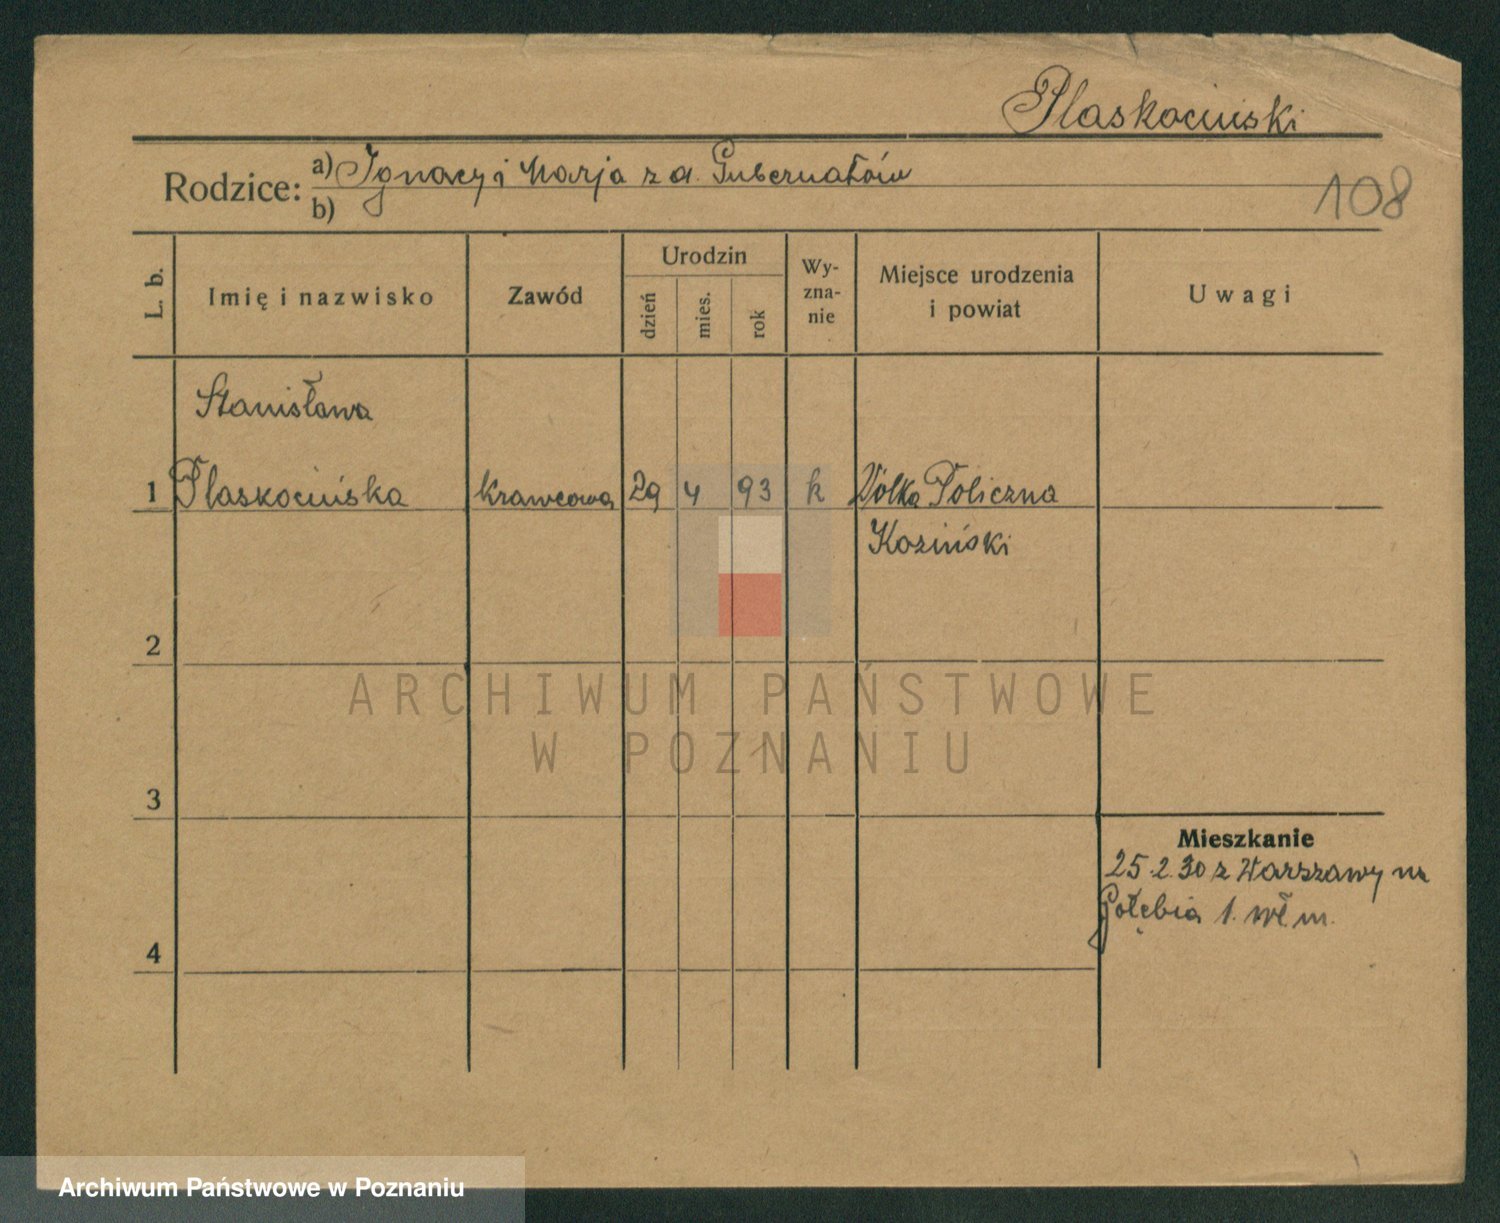 Plaskociński
Rodzice: a) Ignacy i Marja z d. Gubernatów
b)
108
L. b.
Imię i nazwisko
Zawód
Urodzin
dzień
mies.
rok
Wy-
zna-
nie
Miejsce urodzenia
i powiat
Uwagi
Stanisława
1 Plaskocińska krawcowa 29 4 93 k Wólka Policzna
Koziński
2
ARCHIWUM PAŃSTWOWE
W POZNANIU
3
Mieszkanie
25.2.30 z Warszawy na
Gołębia 1. wł m.
4
Archiwum Państwowe w Poznaniu